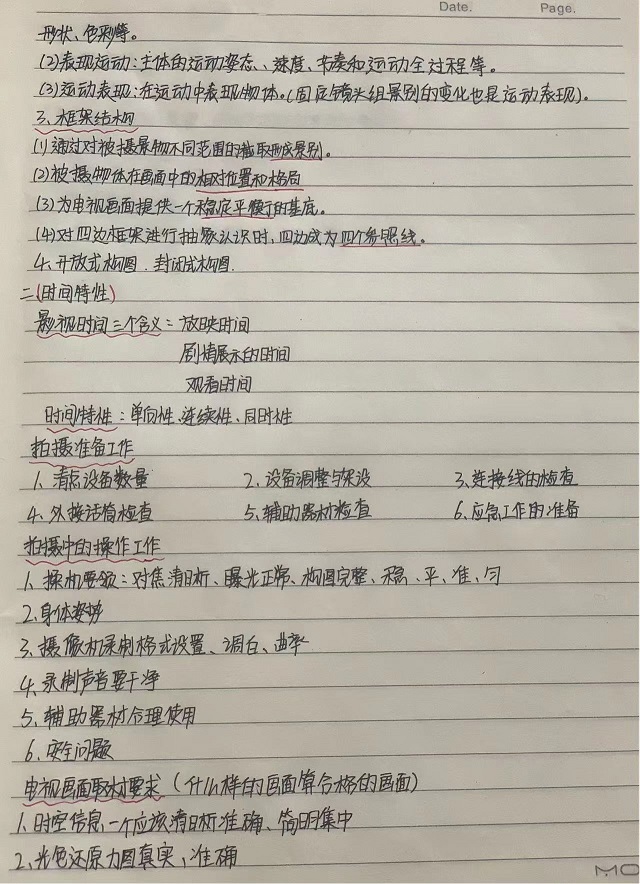 Date. Page.
形状、色彩等。
(2)表现运动:主体的运动姿态、速度、节奏和运动全过程等。
(3)运动表现:在运动中表现物体。(固定镜头组景别的变化也是运动表现)。
3、框架结构
(1)通过对被摄景物不同范围的截取形成景别。
(2)被摄物体在画面中的相对位置和格局
(3)为电视画面提供一个稳定平衡的基底。
(4)对四边框架进行抽象认识时,四边成为四个参照线。
4、开放式构图.封闭式构图.
二(时间特性)
影视时间三个含义:放映时间
剧情展示的时间
观看时间
时间特性:单向性、连续性、同时性
拍摄准备工作
1、清点设备数量 2、设备调整与架设 3、连接线的检查
4、外接话筒检查 5、辅助器材检查 6、应急工作的准备
拍摄中的操作工作
1、操机要领:对焦清晰、曝光正常、构图完整、稳、平、准、匀
2、身体姿势
3、摄像机录制格式设置、调白、曲率
4、录制声音要干净
5、辅助器材合理使用
6、安全问题
电视画面取材要求(什么样的画面算合格的画面)
1、时空信息一个应该清晰准确、简明集中
2、光色还原力图真实,准确
MO